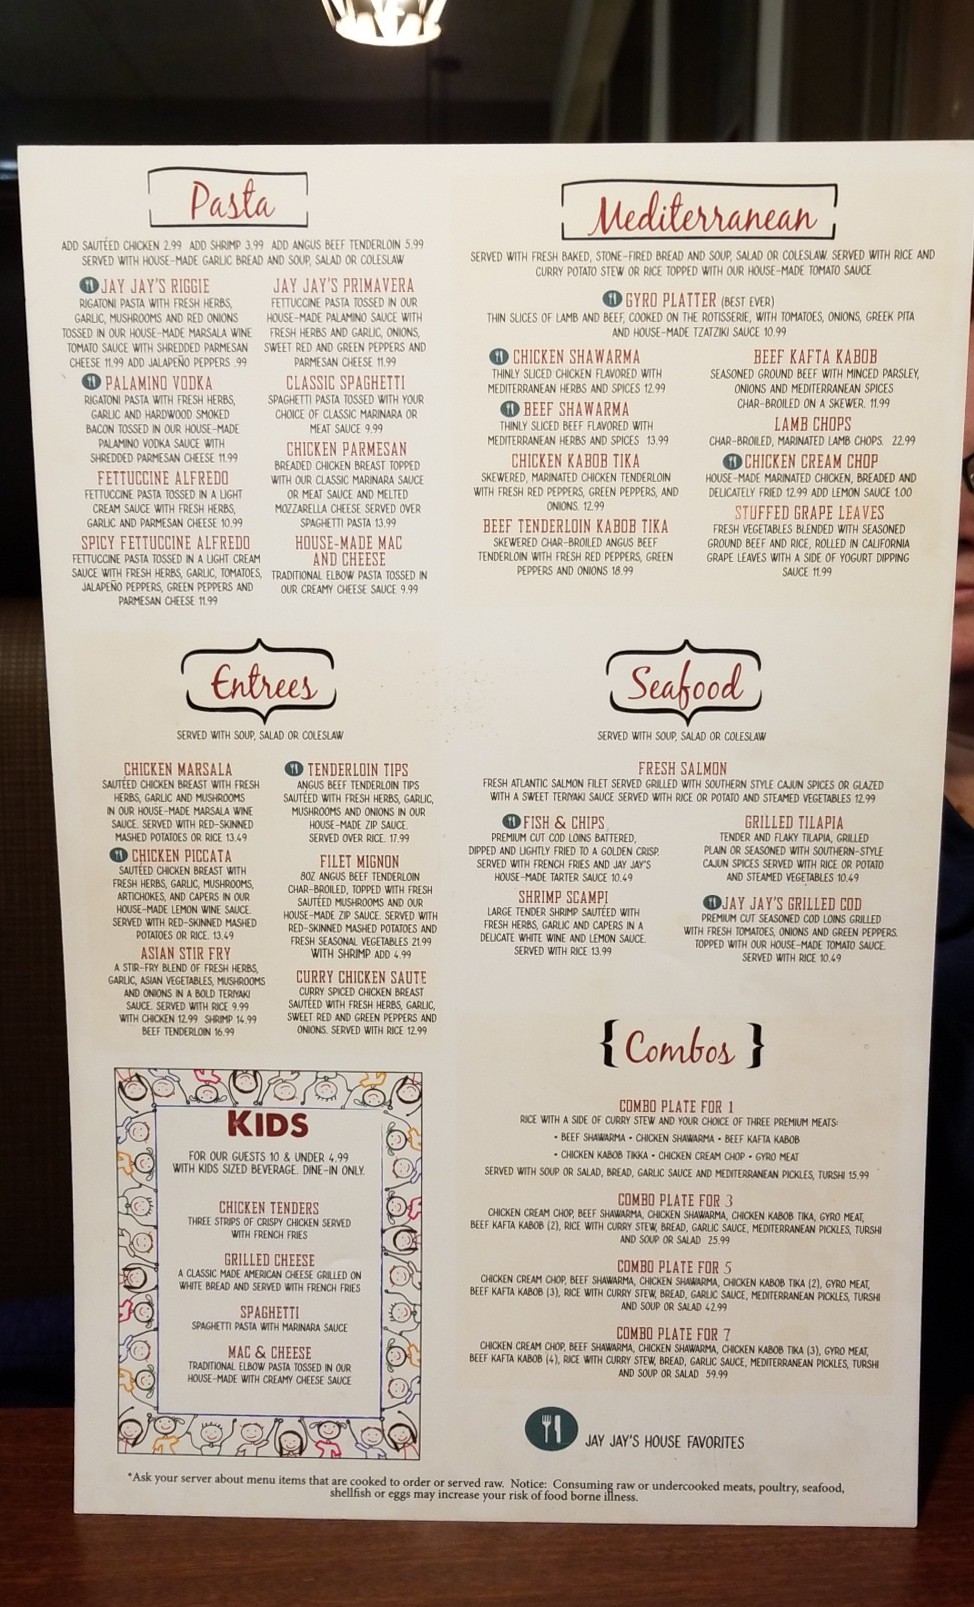 Pasta
ADD SAUTÉED CHICKEN 2.99 ADD SHRIMP 3.99 ADD ANGUS BEEF TENDERLOIN 5.99
SERVED WITH HOUSE-MADE GARLIC BREAD AND SOUP, SALAD OR COLESLAW
JAY JAY'S RIGGIE
RIGATONI PASTA WITH FRESH HERBS,
GARLIC, MUSHROOMS AND RED ONIONS
TOSSED IN OUR HOUSE-MADE MARSALA WINE
TOMATO SAUCE WITH SHREDDED PARMESAN
CHEESE 11.99 ADD JALAPEÑO PEPPERS .99
PALAMINO VODKA
RIGATONI PASTA WITH FRESH HERBS,
GARLIC AND HARDWOOD SMOKED
BACON TOSSED IN OUR HOUSE-MADE
PALAMINO VODKA SAUCE WITH
SHREDDED PARMESAN CHEESE 11.99
FETTUCCINE ALFREDO
FETTUCCINE PASTA TOSSED IN A LIGHT
CREAM SAUCE WITH FRESH HERBS,
GARLIC AND PARMESAN CHEESE 10.99
SPICY FETTUCCINE ALFREDO
FETTUCCINE PASTA TOSSED IN A LIGHT CREAM
SAUCE WITH FRESH HERBS, GARLIC, TOMATOES,
JALAPEÑO PEPPERS, GREEN PEPPERS AND
PARMESAN CHEESE 11.99
JAY JAY'S PRIMAVERA
FETTUCINE PASTA TOSSED IN OUR
HOUSE-MADE PALAMINO SAUCE WITH
FRESH HERBS AND GARLIC, ONIONS,
SWEET RED AND GREEN PEPPERS AND
PARMESAN CHEESE 11.99
CLASSIC SPAGHETTI
SPAGHETTI PASTA TOSSED WITH YOUR
CHOICE OF CLASSIC MARINARA OR
MEAT SAUCE 9.99
CHICKEN PARMESAN
BREADED CHICKEN BREAST TOPPED
WITH OUR CLASSIC MARINARA SAUCE
OR MEAT SAUCE AND MELTED
MOZZARELLA CHEESE SERVED OVER
SPAGHETTI PASTA 13.99
HOUSE-MADE MAC
AND CHEESE
TRADITIONAL ELBOW PASTA TOSSED IN
OUR CREAMY CHEESE SAUCE 9.99
Mediterranean
SERVED WITH FRESH BAKED, STONE-FIRED BREAD AND SOUP, SALAD OR COLESLAW. SERVED WITH RICE AND
CURRY POTATO STEW OR RICE TOPPED WITH OUR HOUSE-MADE TOMATO SAUCE
GYRO PLATTER (BEST EVER)
THIN SLICES OF LAMB AND BEEF, COOKED ON THE ROTISSERIE, WITH TOMATOES, ONIONS, GREEK PITA
AND HOUSE-MADE TZATZIKI SAUCE 10.99
CHICKEN SHAWARMA
THINLY SLICED CHICKEN FLAVORED WITH
MEDITERRANEAN HERBS AND SPICES 12.99
BEEF SHAWARMA
THINLY SLICED BEEF FLAVORED WITH
MEDITERRANEAN HERBS AND SPICES 13.99
CHICKEN KABOB TIKA
SKEWERED, MARINATED CHICKEN TENDERLOIN
WITH FRESH RED PEPPERS, GREEN PEPPERS, AND
ONIONS. 12.99
BEEF TENDERLOIN KABOB TIKA
SKEWERED CHAR-BROILED ANGUS BEEF
TENDERLOIN WITH FRESH RED PEPPERS, GREEN
PEPPERS AND ONIONS 18.99
BEEF KAFTA KABOB
SEASONED GROUND BEEF WITH MINCED PARSLEY,
ONIONS AND MEDITERRANEAN SPICES
CHAR-BROILED ON A SKEWER. 11.99
LAMB CHOPS
CHAR-BROILED, MARINATED LAMB CHOPS. 22.99
CHICKEN CREAM CHOP
HOUSE-MADE MARINATED CHICKEN, BREADED AND
DELICATELY FRIED 12.99 ADD LEMON SAUCE 1.00
STUFFED GRAPE LEAVES
FRESH VEGETABLES BLENDED WITH SEASONED
GROUND BEEF AND RICE, ROLLED IN CALIFORNIA
GRAPE LEAVES WITH A SIDE OF YOGURT DIPPING
SAUCE 11.99
Entrees
SERVED WITH SOUP, SALAD OR COLESLAW
CHICKEN MARSALA
SAUTÉED CHICKEN BREAST WITH FRESH
HERBS, GARLIC AND MUSHROOMS
IN OUR HOUSE-MADE MARSALA WINE
SAUCE. SERVED WITH RED-SKINNED
MASHED POTATOES OR RICE 13.49
CHICKEN PICCATA
SAUTÉED CHICKEN BREAST WITH
FRESH HERBS, GARLIC, MUSHROOMS,
ARTICHOKES, AND CAPERS IN OUR
HOUSE-MADE LEMON WINE SAUCE.
SERVED WITH RED-SKINNED MASHED
POTATOES OR RICE. 13.49
ASIAN STIR FRY
A STIR-FRY BLEND OF FRESH HERBS,
GARLIC, ASIAN VEGETABLES, MUSHROOMS
AND ONIONS IN A BOLD TERIYAKI
SAUCE. SERVED WITH RICE 9.99
WITH CHICKEN 12.99 SHRIMP 14.99
BEEF TENDERLOIN 16.99
TENDERLOIN TIPS
ANGUS BEEF TENDERLOIN TIPS
SAUTÉED WITH FRESH HERBS, GARLIC,
MUSHROOMS AND ONIONS IN OUR
HOUSE-MADE ZIP SAUCE.
SERVED OVER RICE. 17.99
FILET MIGNON
8OZ ANGUS BEEF TENDERLOIN
CHAR-BROILED, TOPPED WITH FRESH
SAUTÉED MUSHROOMS AND OUR
HOUSE-MADE ZIP SAUCE. SERVED WITH
RED-SKINNED MASHED POTATOES AND
FRESH SEASONAL VEGETABLES 21.99
WITH SHRIMP ADD 4.99
CURRY CHICKEN SAUTE
CURRY SPICED CHICKEN BREAST
SAUTÉED WITH FRESH HERBS, GARLIC,
SWEET RED AND GREEN PEPPERS AND
ONIONS. SERVED WITH RICE 12.99
Seafood
SERVED WITH SOUP, SALAD OR COLESLAW
FRESH SALMON
FRESH ATLANTIC SALMON FILET SERVED GRILLED WITH SOUTHERN STYLE CAJUN SPICES OR GLAZED
WITH A SWEET TERIYAKI SAUCE SERVED WITH RICE OR POTATO AND STEAMED VEGETABLES 12.99
FISH & CHIPS
PREMIUM CUT COD LOINS BATTERED,
DIPPED AND LIGHTLY FRIED TO A GOLDEN CRISP.
SERVED WITH FRENCH FRIES AND JAY JAY'S
HOUSE-MADE TARTER SAUCE 10.49
SHRIMP SCAMPI
LARGE TENDER SHRIMP SAUTÉED WITH
FRESH HERBS, GARLIC AND CAPERS IN A
DELICATE WHITE WINE AND LEMON SAUCE.
SERVED WITH RICE 13.99
GRILLED TILAPIA
TENDER AND FLAKY TILAPIA, GRILLED
PLAIN OR SEASONED WITH SOUTHERN-STYLE
CAJUN SPICES SERVED WITH RICE OR POTATO
AND STEAMED VEGETABLES 10.49
JAY JAY'S GRILLED COD
PREMIUM CUT SEASONED COD LOINS GRILLED
WITH FRESH TOMATOES, ONIONS AND GREEN PEPPERS.
TOPPED WITH OUR HOUSE-MADE TOMATO SAUCE.
SERVED WITH RICE 10.49
{Combos}
COMBO PLATE FOR 1
RICE WITH A SIDE OF CURRY STEW AND YOUR CHOICE OF THREE PREMIUM MEATS:
• BEEF SHAWARMA • CHICKEN SHAWARMA • BEEF KAFTA KABOB
• CHICKEN KABOB TIKKA • CHICKEN CREAM CHOP • GYRO MEAT
SERVED WITH SOUP OR SALAD, BREAD, GARLIC SAUCE AND MEDITERRANEAN PICKLES, TURSHI 15.99
COMBO PLATE FOR 3
CHICKEN CREAM CHOP, BEEF SHAWARMA, CHICKEN SHAWARMA, CHICKEN KABOB TIKA, GYRO MEAT,
BEEF KAFTA KABOB (2), RICE WITH CURRY STEW, BREAD, GARLIC SAUCE, MEDITERRANEAN PICKLES, TURSHI
AND SOUP OR SALAD 25.99
COMBO PLATE FOR 5
CHICKEN CREAM CHOP, BEEF SHAWARMA, CHICKEN SHAWARMA, CHICKEN KABOB TIKA (2), GYRO MEAT,
BEEF KAFTA KABOB (3), RICE WITH CURRY STEW, BREAD, GARLIC SAUCE, MEDITERRANEAN PICKLES, TURSHI
AND SOUP OR SALAD 42.99
COMBO PLATE FOR 7
CHICKEN CREAM CHOP, BEEF SHAWARMA, CHICKEN SHAWARMA, CHICKEN KABOB TIKA (3), GYRO MEAT,
BEEF KAFTA KABOB (4), RICE WITH CURRY STEW, BREAD, GARLIC SAUCE, MEDITERRANEAN PICKLES, TURSHI
AND SOUP OR SALAD 59.99
KIDS
FOR OUR GUESTS 10 & UNDER 4.99
WITH KIDS SIZED BEVERAGE. DINE-IN ONLY.
CHICKEN TENDERS
THREE STRIPS OF CRISPY CHICKEN SERVED
WITH FRENCH FRIES
GRILLED CHEESE
A CLASSIC MADE AMERICAN CHEESE GRILLED ON
WHITE BREAD AND SERVED WITH FRENCH FRIES
SPAGHETTI
SPAGHETTI PASTA WITH MARINARA SAUCE
MAC & CHEESE
TRADITIONAL ELBOW PASTA TOSSED IN OUR
HOUSE-MADE WITH CREAMY CHEESE SAUCE
JAY JAY'S HOUSE FAVORITES
*Ask your server about menu items that are cooked to order or served raw. Notice: Consuming raw or undercooked meats, poultry, seafood,
shellfish or eggs may increase your risk of food borne illness.